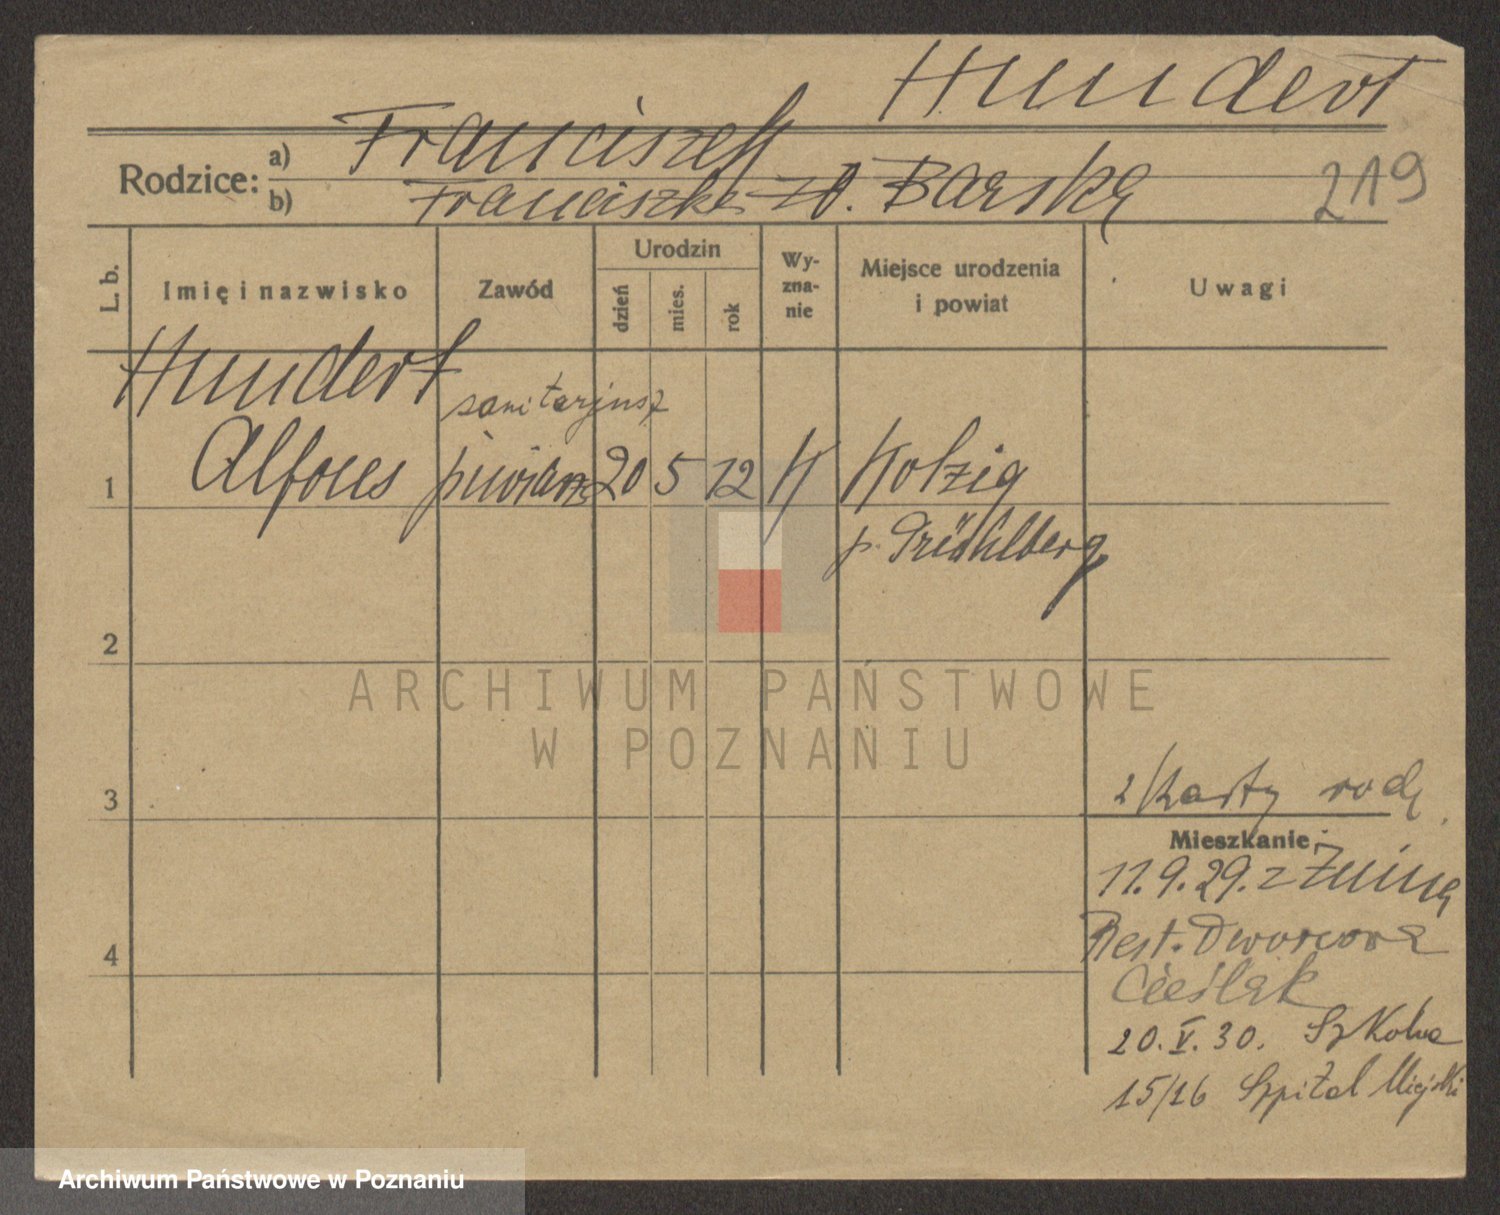 Hundert
Rodzice: a) Franciszek
b) Franciszka z d. Barska
219
L. b.
Imię i nazwisko
Zawód
Urodzin
dzień
mies.
rok
Wy-
zna-
nie
Miejsce urodzenia
i powiat
Uwagi
Hundert
sanitarjusz
1 Alfons piwiarz 20 5 12 K Kolzig
p.
2
ARCHIWUM PAŃSTWOWE
W POZNANIU
z karty rodz.
3
Mieszkanie
11.9.29. z Żnina
Rest. Dworcowa
4
Cieślak
20.V.30. Szkolna
15/16 Szpital Miejski
Archiwum Państwowe w Poznaniu